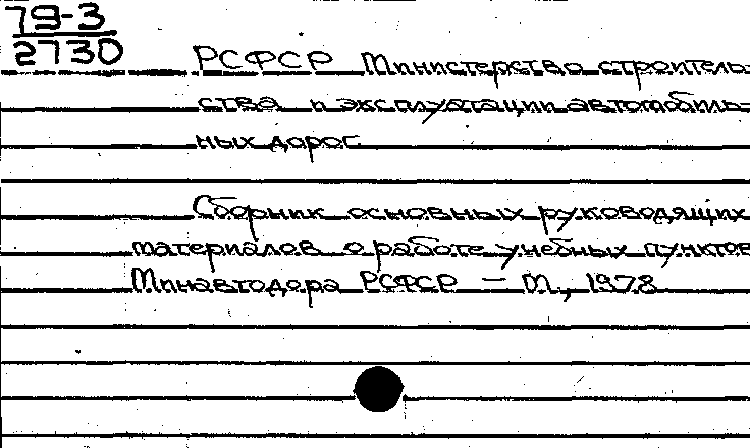 79-3
2730
РСФСР Министерство строитель-
ства и эксплуатации автомобиль-
ных дорог.
Сборник основных руководящих
материалов о работе учебных пунктов
Минавтодора РСФСР – М., 1978